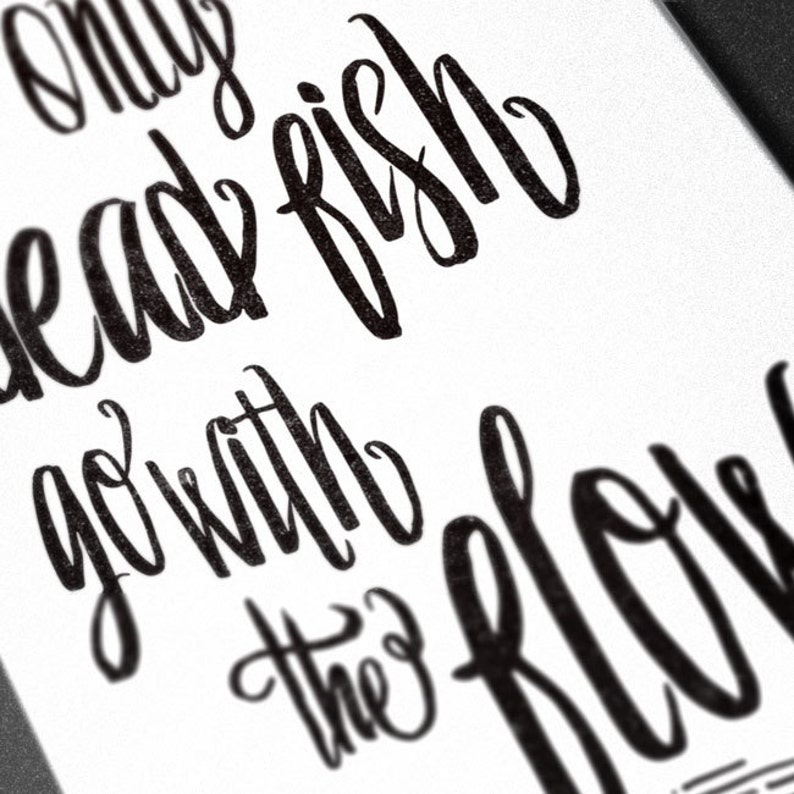 only
dead fish
go with
the flow